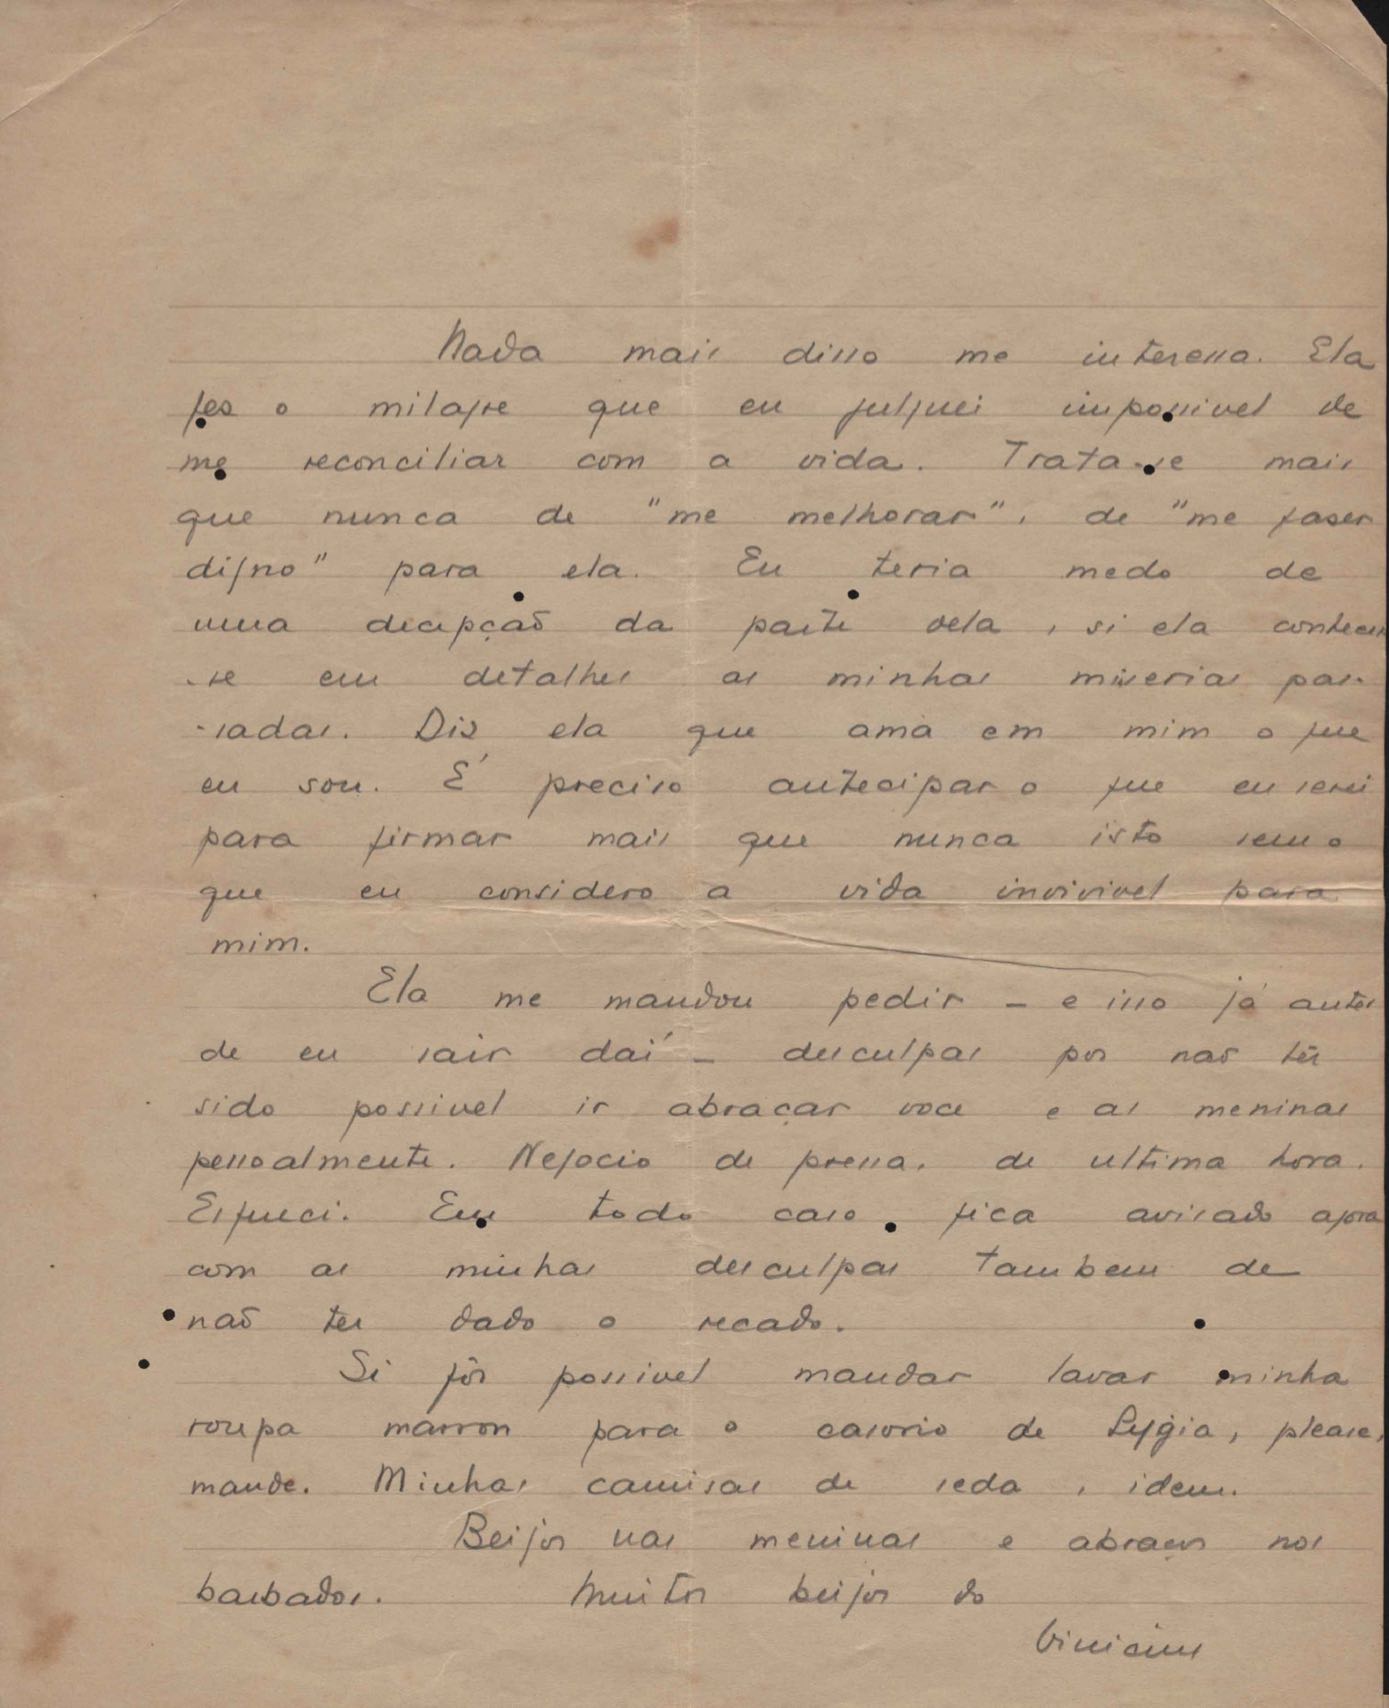 Nada mais disso me interessa. Ela
fes o milagre que eu julguei impossivel de
me reconciliar com a vida. Trata-se mais
que nunca de "me melhorar", de "me faser
digno" para ela. Eu teria medo de
uma decepção da parte dela, si ela conheces
-se em detalhes as minhas miserias pas-
-sadas. Dis ela que ama em mim o que
eu sou. É preciso antecipar o que eu serei
para firmar mais que nunca isto sem o
que eu considero a vida invivivel para
mim.
Ela me mandou pedir - e isso já antes
de eu sair daí - desculpas por não ter
sido possivel ir abraçar voce e as meninas
pessoalmente. Negocio de pressa, de ultima hora.
Esqueci. Em todo caso, fica avisado agora
com as minhas desculpas tambem de
não ter dado o recado.
Si fôr possivel mandar lavar minha
roupa marron para o casorio de Lygia, please,
mande. Minhas camisas de seda, idem.
Beijos nas meninas e abraços nos
barbados. Muitos beijos do
Vinicius